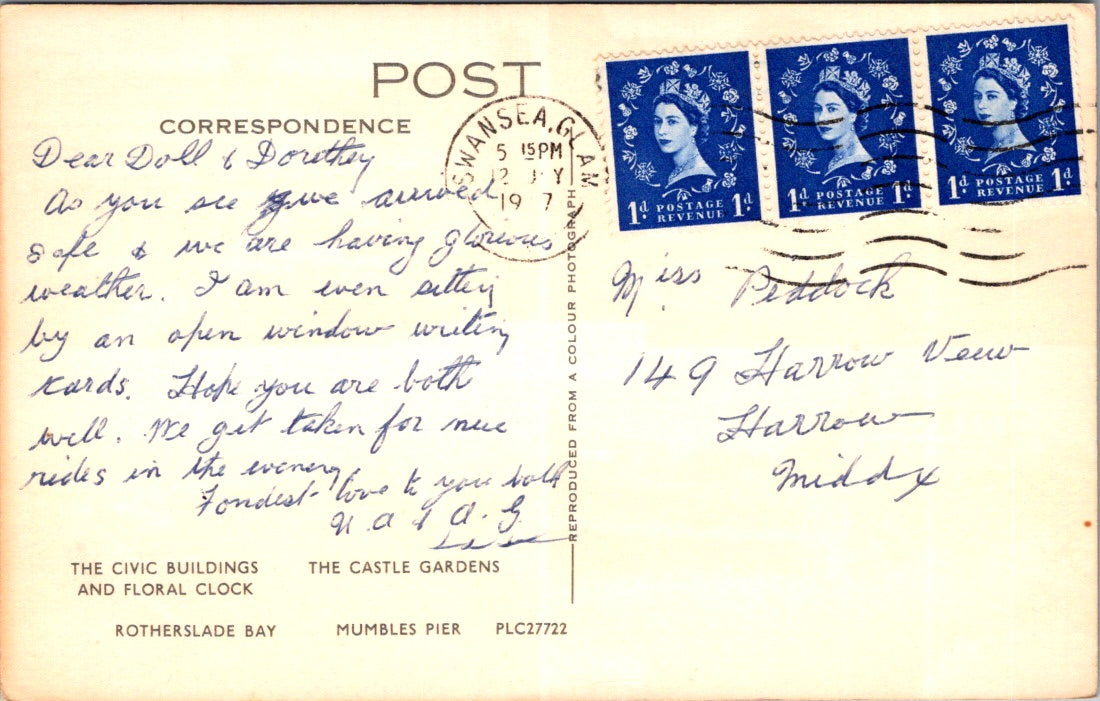 POST
CORRESPONDENCE
Dear Doll & Dorothy
As you see we arrived
safe & we are having glorious
weather. I am even sitting
by an open window writing
cards. Hope you are both
well. We get taken for nice
rides in the evening
Fondest love to you both
& A. G.
THE CIVIC BUILDINGS
AND FLORAL CLOCK
THE CASTLE GARDENS
ROTHERSLADE BAY
MUMBLES PIER
PLC27722
REPRODUCED FROM A COLOUR PHOTOGRAPH
SWANSEA, GLAM
5 15PM
12 Y
19 7
1d POSTAGE REVENUE 1d
1d POSTAGE REVENUE 1d
1d POSTAGE REVENUE 1d
Miss Peddock
149 Harrow View
Harrow
Middx